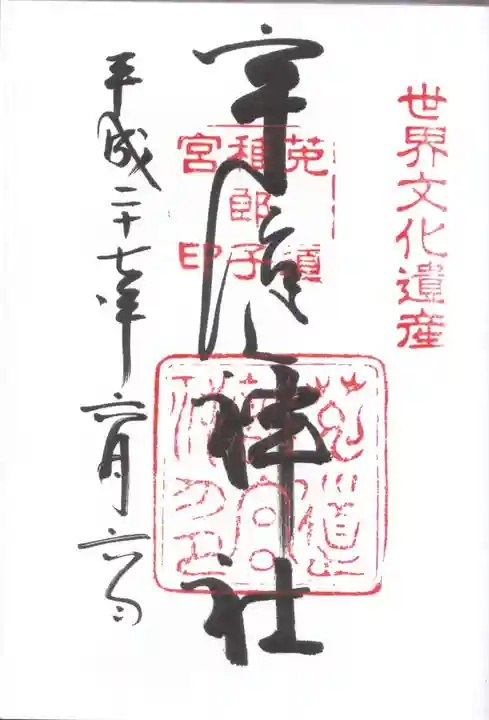 世界文化遺産
宇治上神社
菟道
稚郎子
宮印
平成二十七年六月六日